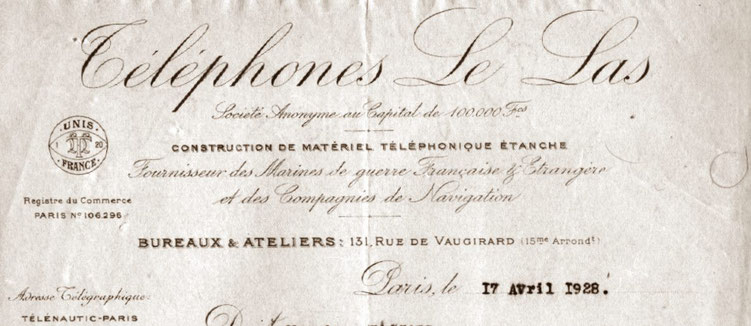 Téléphones Le Las
Société Anonyme au Capital de 100.000 Fcs
CONSTRUCTION DE MATÉRIEL TÉLÉPHONIQUE ÉTANCHE
Fournisseur des Marines de guerre Française & Etrangère
et des Compagnies de Navigation
UNIS
1 20
FRANCE
Registre du Commerce
PARIS No 106.296
BUREAUX & ATELIERS: 131, RUE DE VAUGIRARD (15me Arrondt)
Paris, le 17 Avril 1928.
Adresse Télégraphique:
TÉLÉNAUTIC-PARIS
Doit